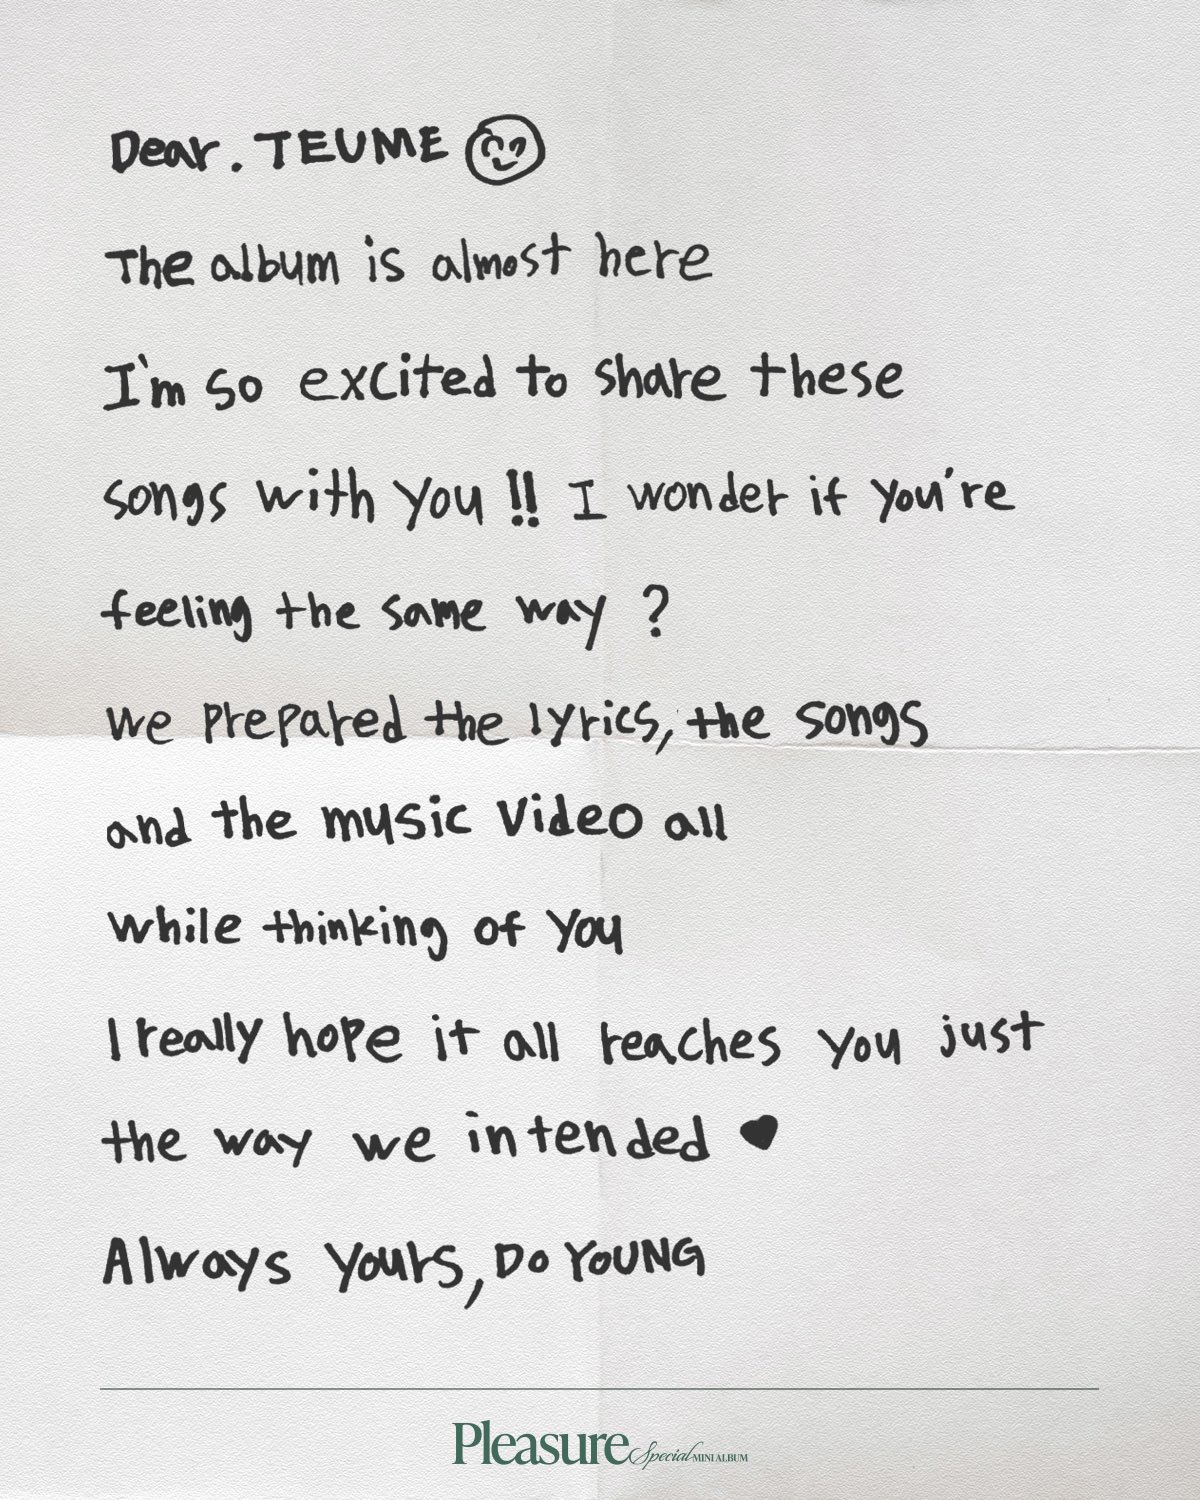 Dear. TEUME
The album is almost here
I'm so excited to share these
songs with you!! I wonder if you're
feeling the same way?
we prepared the lyrics, the songs
and the music video all
while thinking of you
I really hope it all reaches you just
the way we intended ♥
Always yours, DO YOUNG
Pleasure Special MINI ALBUM